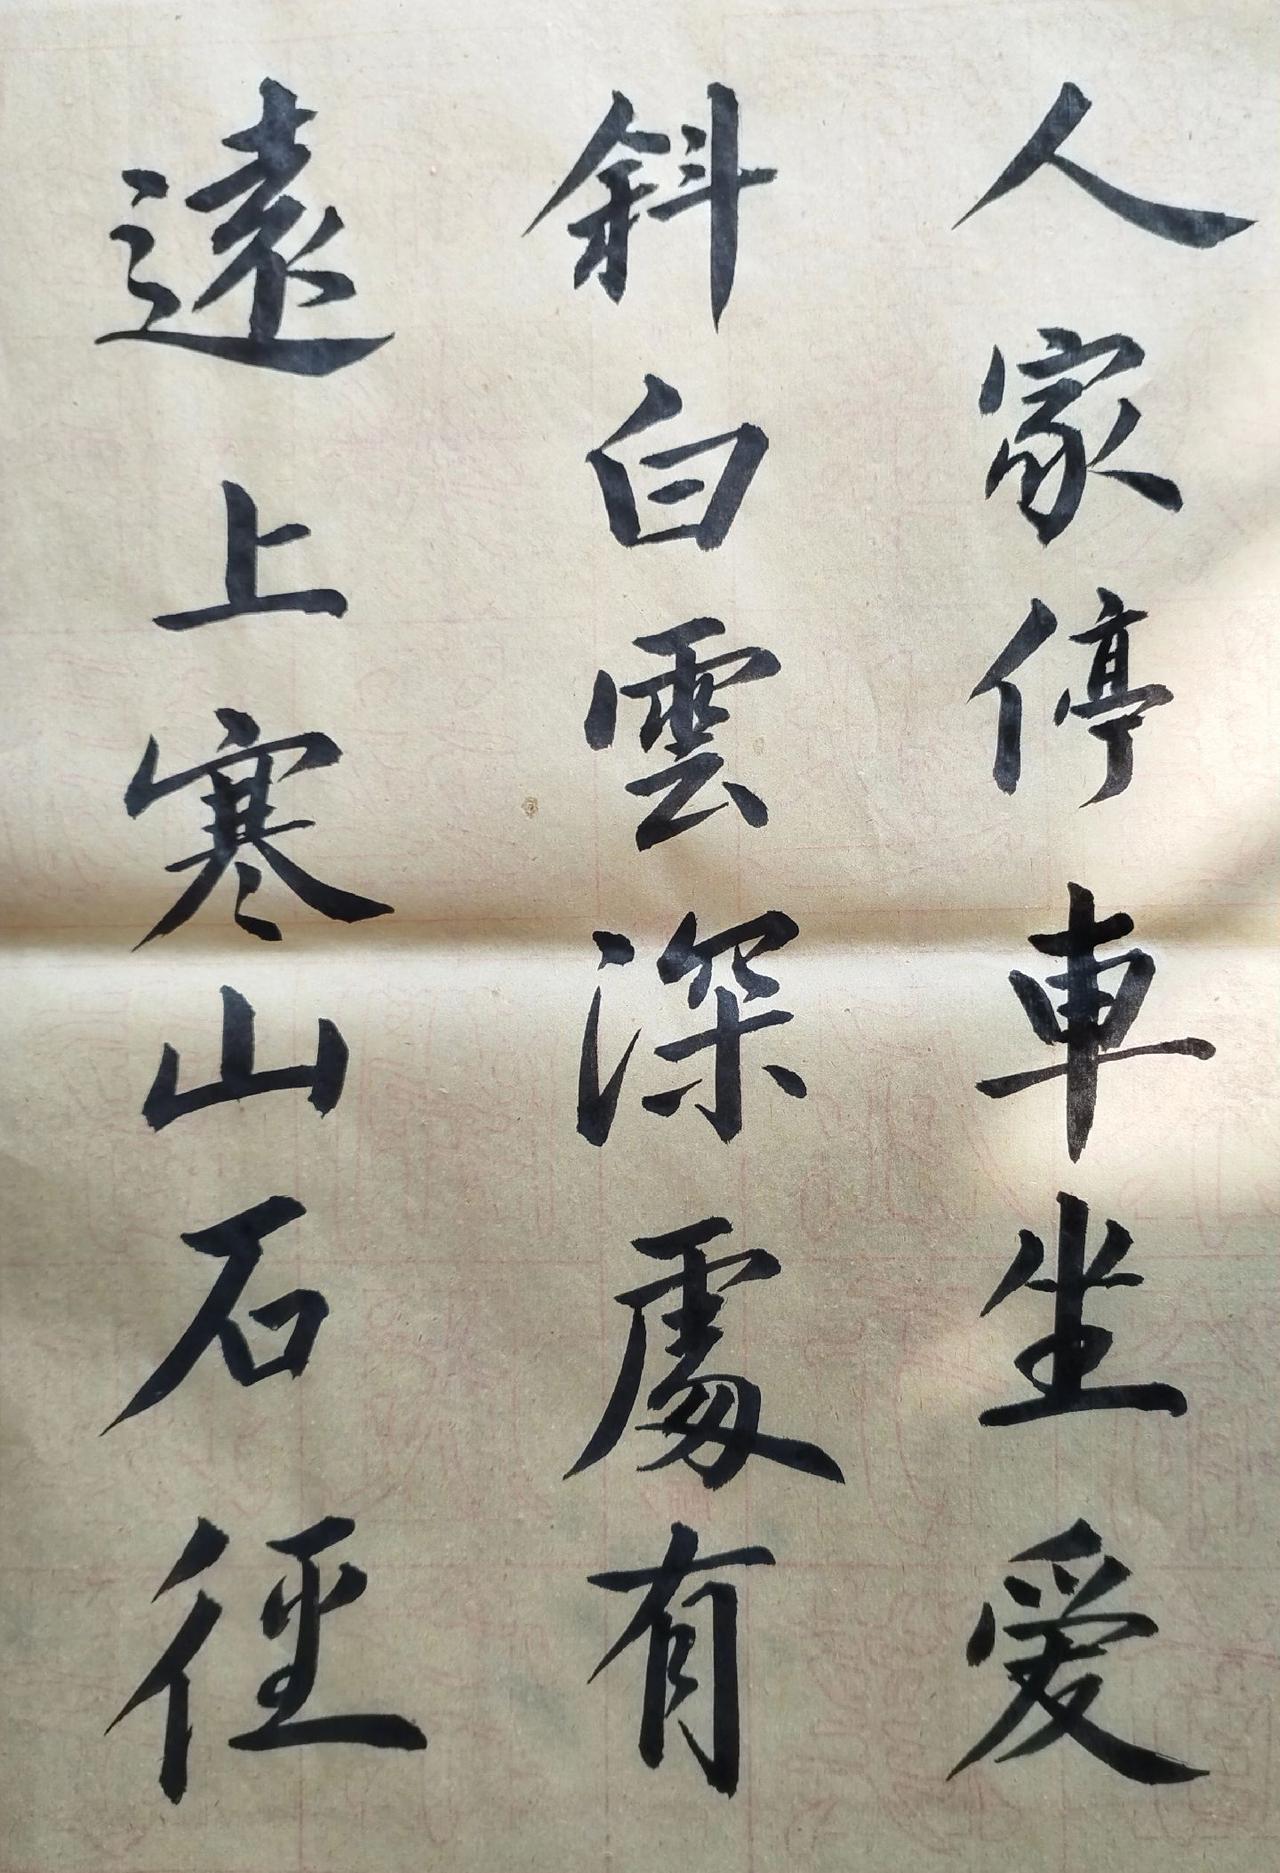 遠上寒山石徑
斜白雲深處有
人家停車坐愛